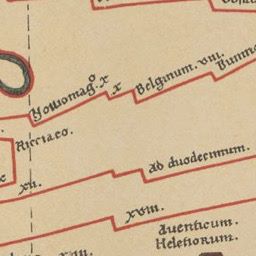 Noviomag͞o. x
x
Belginum. viii.
Ricciaco.
xii.
ab duodecimum.
xviii.
aventicum.
Heletiorum.